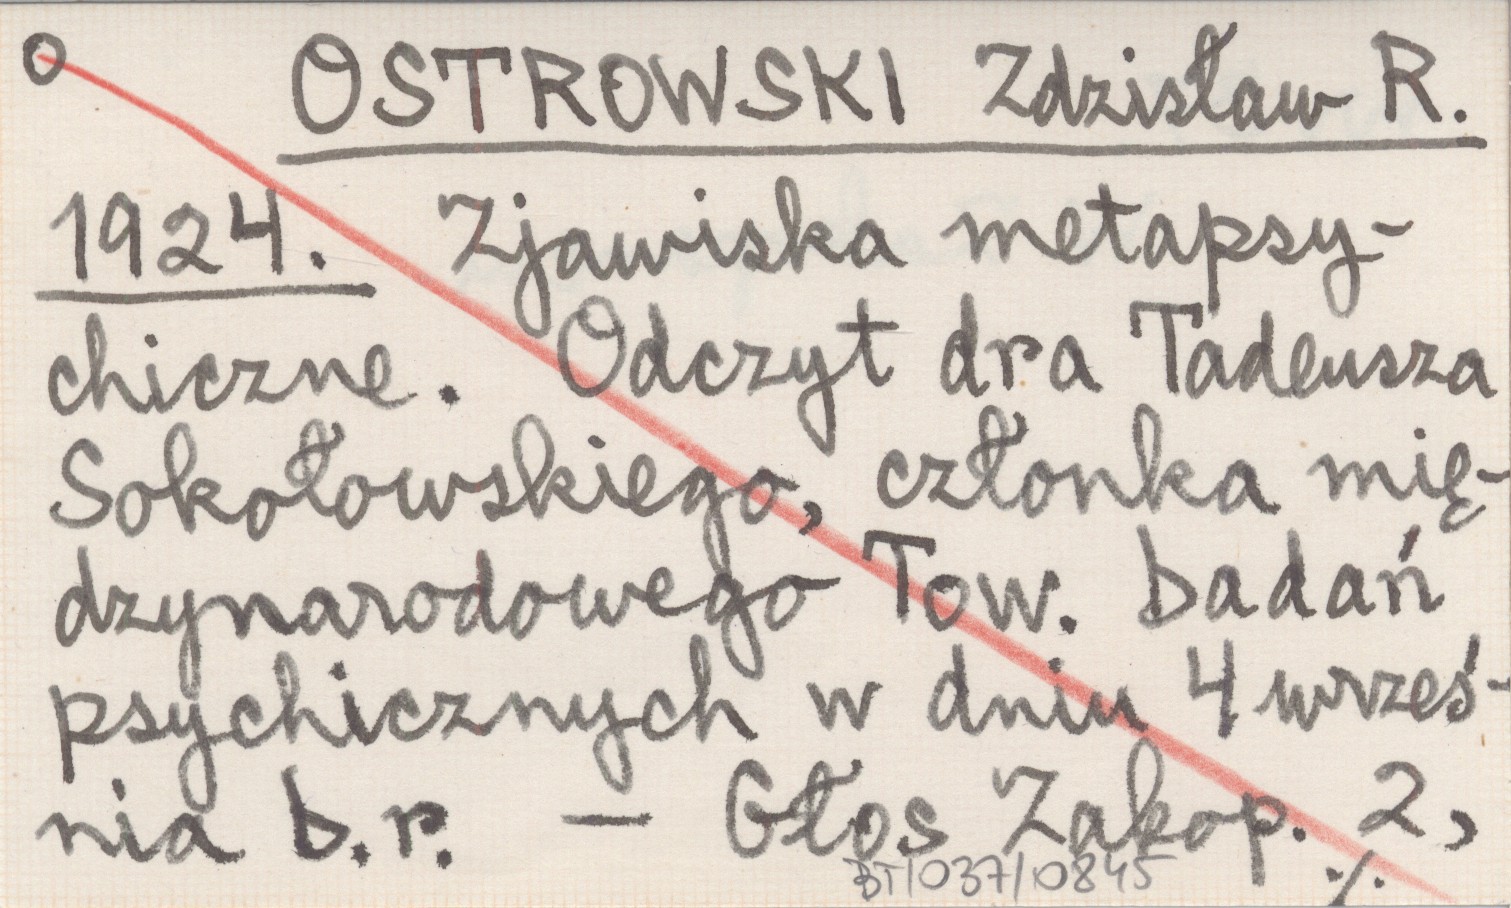 O OSTROWSKI Zdzisław R.
1924. Zjawiska metapsy-
chiczne. Odczyt dra Tadeusza
Sokołowskiego, członka mię-
dzynarodowego Tow. badań
psychicznych w dniu 4 wrześ-
nia b.r. — Głos Zakop. 2,
BT/037/0845 ./.